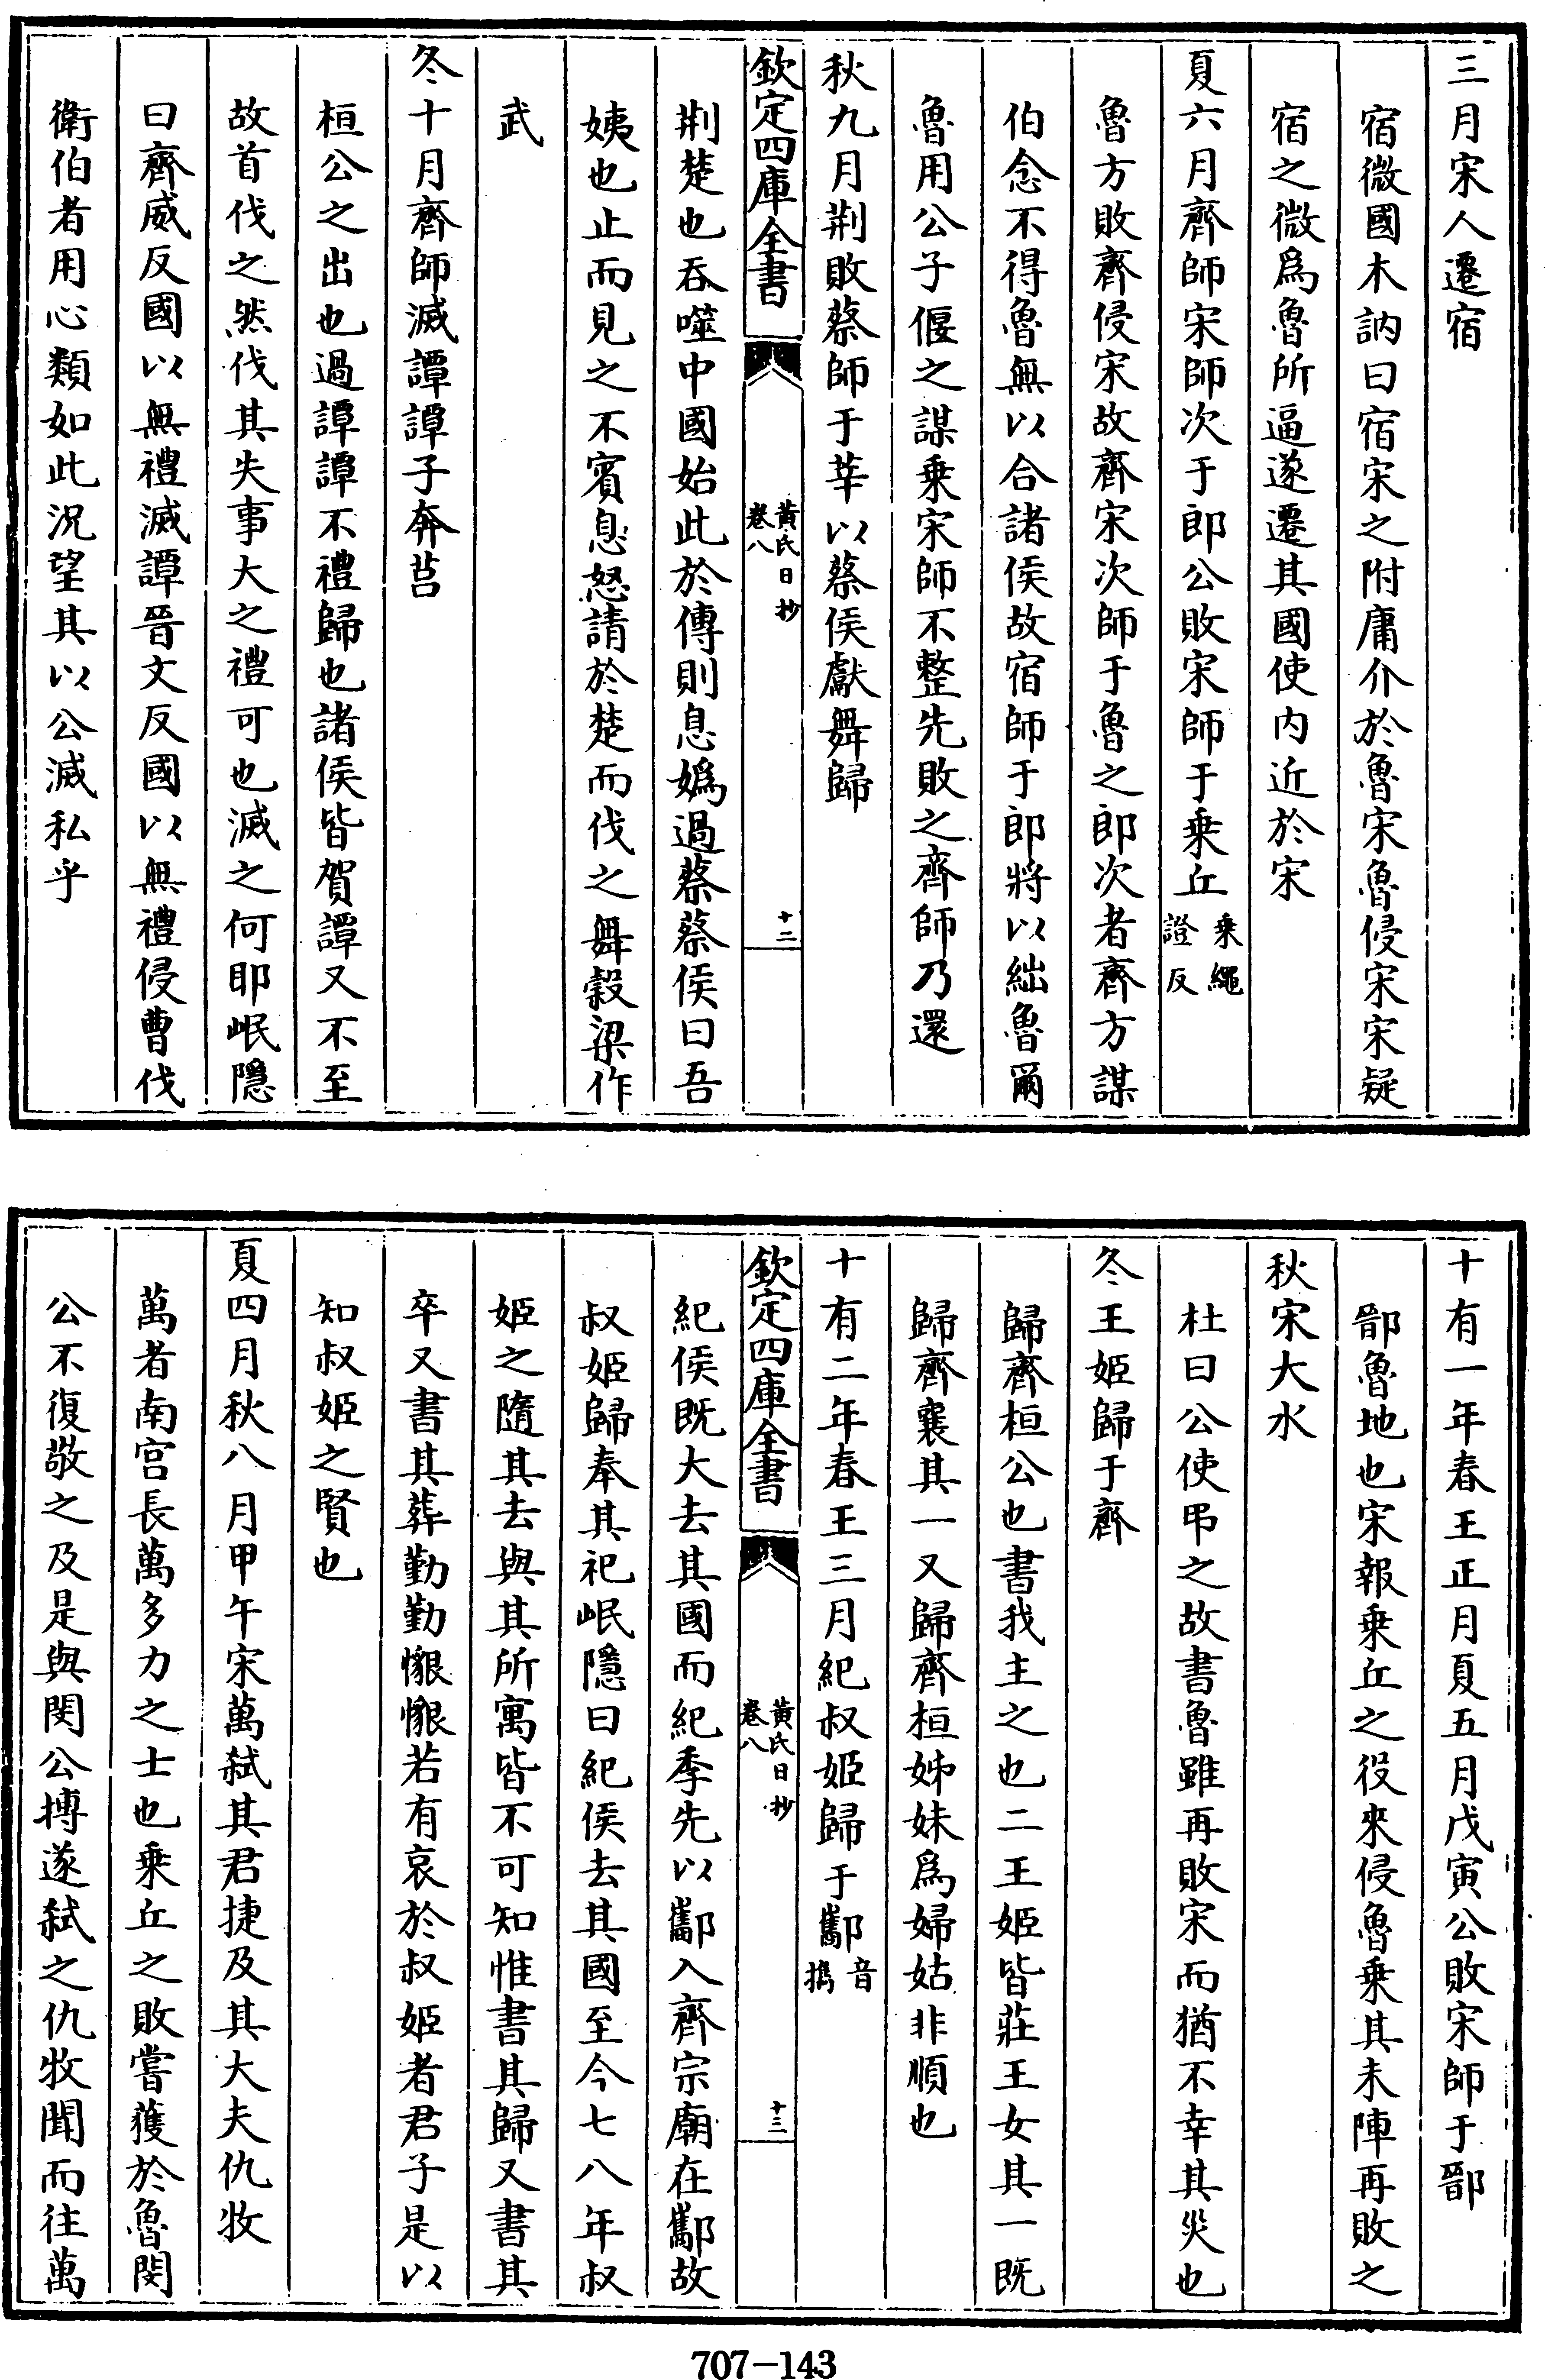 三月宋人遷宿
宿微國木訥曰宿宋之附庸介於魯宋魯侵宋宋疑
宿之微爲魯所逼遂遷其國使内近於宋
夏六月齊師宋師次于郎公敗宋師于乗丘乗繩證反
魯方敗齊侵宋故齊宋次師于魯之郎次者齊方謀
伯念不得魯無以合諸侯故宿師于郎將以絀魯爾
魯用公子偃之謀乗宋師不整先敗之齊師乃還
秋九月荆敗蔡師于莘以蔡侯獻舞歸
欽定四庫全書 黃氏日抄 卷八 十二
荆楚也吞噬中國始此於傳則息嬀過蔡蔡侯曰吾
姨也止而見之不賓息怒請於楚而伐之舞穀梁作
武
冬十月齊師滅譚譚子奔莒
桓公之出也過譚譚不禮歸也諸侯皆賀譚又不至
故首伐之然伐其失事大之禮可也滅之何耶岷隱
曰齊威反國以無禮滅譚晉文反國以無禮侵曹伐
衛伯者用心類如此況望其以公滅私乎
十有一年春王正月夏五月戊寅公敗宋師于鄑
鄑魯地也宋報乗丘之役來侵魯乗其未陣再敗之
秋宋大水
杜曰公使弔之故書魯雖再敗宋而猶不幸其災也
冬王姬歸于齊
歸齊桓公也書我主之也二王姬皆莊王女其一既
歸齊襄其一又歸齊桓姊妹爲婦姑非順也
十有二年春王三月紀叔姬歸于酅音攜
欽定四庫全書 黃氏日抄 卷八 十三
紀侯既大去其國而紀季先以酅入齊宗廟在酅故
叔姬歸奉其祀岷隱曰紀侯去其國至今七八年叔
姬之隨其去與其所寓皆不可知惟書其歸又書其
卒又書其葬勤勤懇懇若有哀於叔姬者君子是以
知叔姬之賢也
夏四月秋八月甲午宋萬弑其君捷及其大夫仇牧
萬者南宫長萬多力之士也乗丘之敗嘗獲於魯閔
公不復敬之及是與閔公搏遂弑之仇牧聞而往萬
707-143